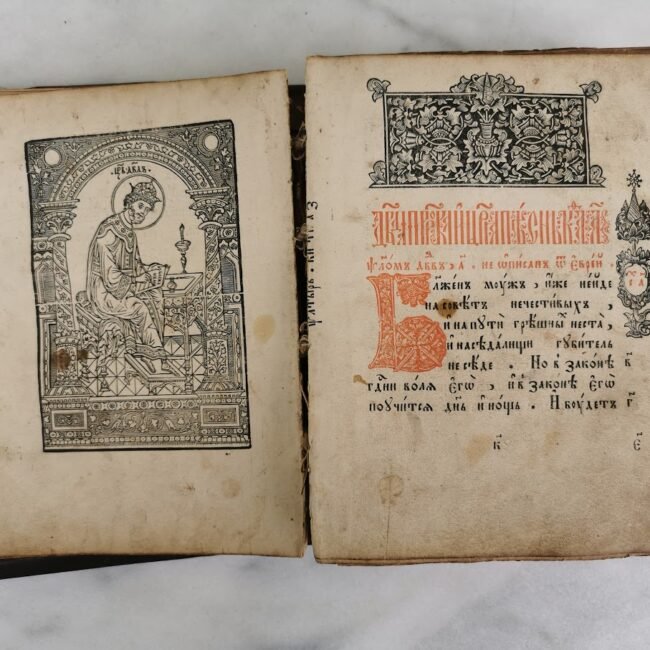 Ѱалтырь
ѱаломъ дв҃дꙋ, а҃. не ѡписанъ ѿ еврей
Бл҃женъ моужъ, иже неиде
на совѣтъ нечестивыхъ,
и на пꙋти грѣшныⷯ неста,
и на сѣдалищи губитель
не сѣде. Но в законѣ в҃
гдн҃и волѧ егѡ, и в законѣ егѡ
поучитсѧ дн҃ь и нощь. И боудетъ г҃
к҃ е҃